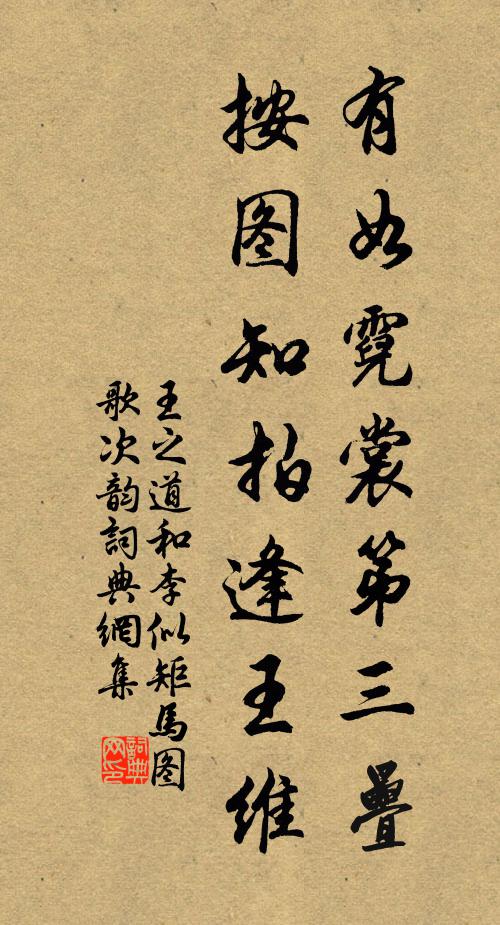 有如霓裳第三疊
按图知拍逢王維
王之道和李似矩馬图
歌次韵詞典網集
詞典网印